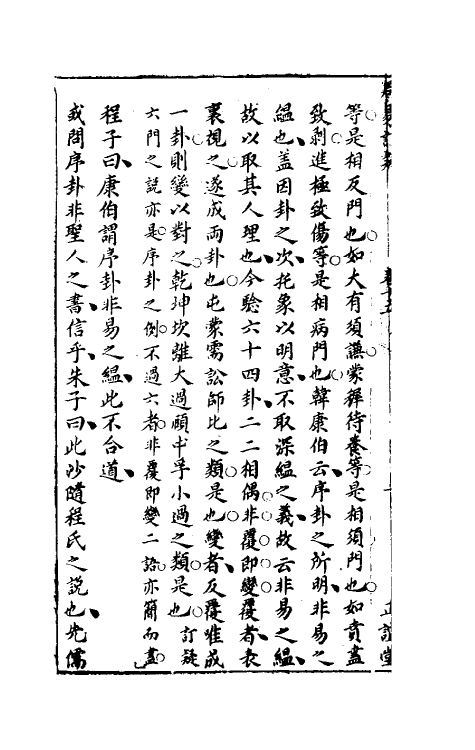 等是相反門也如大有須謙蒙稺待養等是相須門也如賁盡
致剝進極致傷等是相病門也韓康伯云序卦之所明非易之
緼也蓋因卦之次托象以明意不取深緼之義故云非易之緼
故以取其人理也今驗六十四卦二二相偶非覆即變覆者表
裏視之遂成兩卦也屯蒙需訟師比之類是也變者反覆唯成
一卦則變以對之乾坤坎離大過頤中孚小過之類是也訂疑
六門之説亦是序卦之例不過六者非覆即變二語亦簡而盡
程子曰康伯謂序卦非易之緼此不合道
或問序卦非聖人之書信乎朱子曰此沙隨程氏之説也先儒